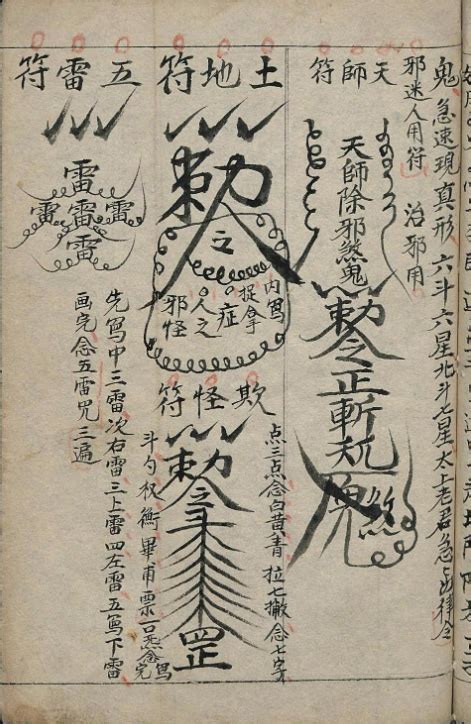 鬼急速現真形 六斗六星北斗七星太上老君急
律令
邪迷人用符 治邪用
天師符
天師除邪煞鬼
勅令正斬
煞
土地符
勅令
之
内寫
捉拿
症
人之
邪怪
欺怪符
点三点念白黄青 拉七撇念七字
勅令
罡
斗勺权衡畢甫票
五雷符
雷
雷雷雷
雷
先寫中三雷次右雷三上雷四左雷五寫下雷
画完念五雷咒三遍